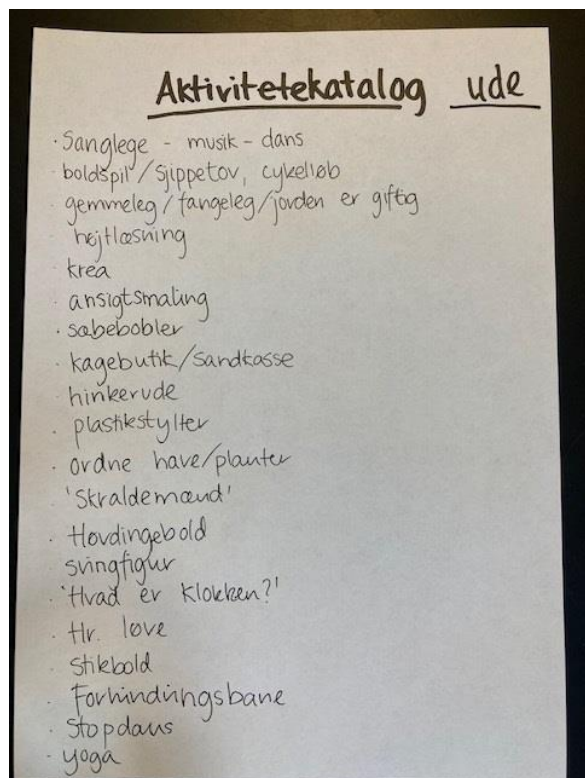 Aktivitetekatalog ude
· Sanglege - musik - dans
· boldspil / sjippetov, cykelløb
· gemmeleg / fangeleg / jorden er giftig
· højtlæsning
· krea
· ansigtsmaling
· sæbebobler
· kagebutik / sandkasse
· hinkerude
· plastikstylter
· ordne have / planter
· 'Skraldemænd'
· Høvdingebold
· svingfigur
· 'Hvad er klokken?'
· Hr. løve
· Stikbold
· Forhindringsbane
· Stopdans
· yoga